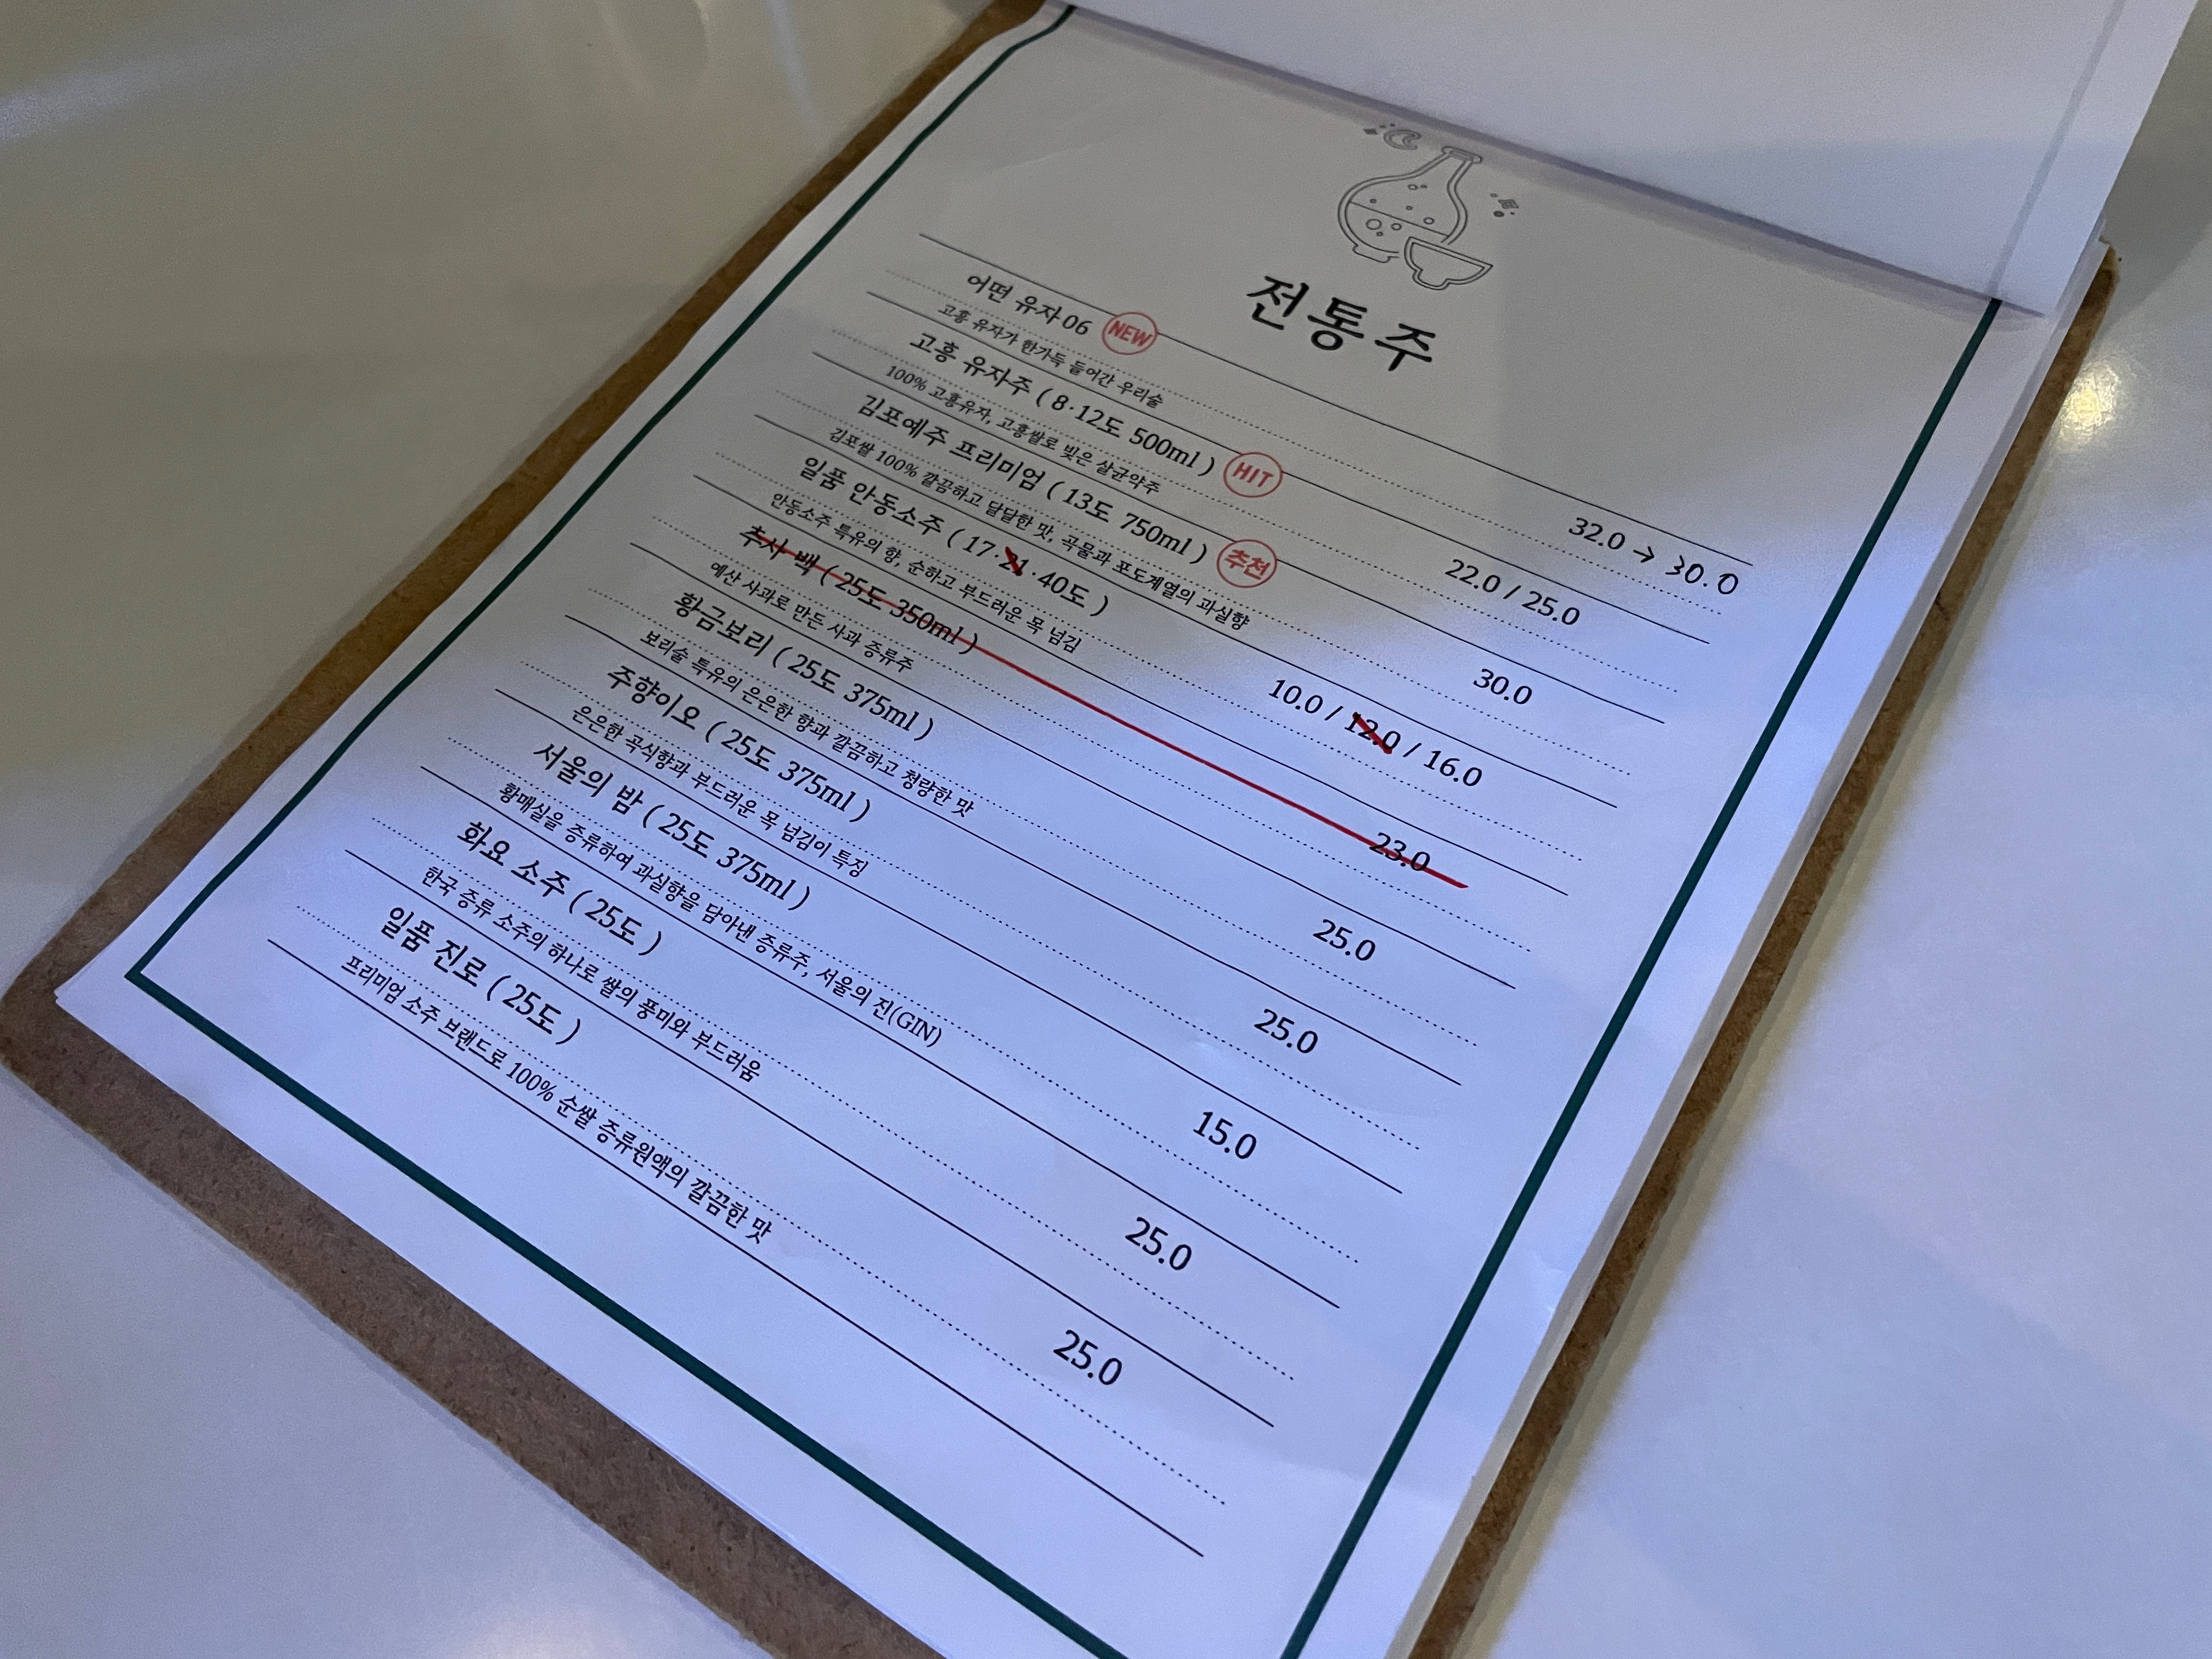 전통주
어떤 유자 06 NEW 32.0 → 30.0
고흥 유자가 한가득 들어간 우리술
고흥 유자주 ( 8·12도 500ml ) HIT 22.0 / 25.0
100% 고흥유자, 고흥쌀로 빚은 살균약주
김포예주 프리미엄 ( 13도 750ml ) 추천 30.0
김포쌀 100% 깔끔하고 달달한 맛, 곡물과 포도계열의 과실향
일품 안동소주 ( 17·21·40도 ) 10.0 / 12.0 / 16.0
안동소주 특유의 향, 순하고 부드러운 목 넘김
추사 백 ( 25도 350ml ) 23.0
예산 사과로 만든 사과 증류주
황금보리 ( 25도 375ml ) 25.0
보리술 특유의 은은한 향과 깔끔하고 청량한 맛
주향이오 ( 25도 375ml ) 25.0
은은한 곡식향과 부드러운 목 넘김이 특징
서울의 밤 ( 25도 375ml ) 15.0
황매실을 증류하여 과실향을 담아낸 증류주, 서울의 진(GIN)
화요 소주 ( 25도 ) 25.0
한국 증류 소주의 하나로 쌀의 풍미와 부드러움
일품 진로 ( 25도 ) 25.0
프리미엄 소주 브랜드로 100% 순쌀 증류원액의 깔끔한 맛